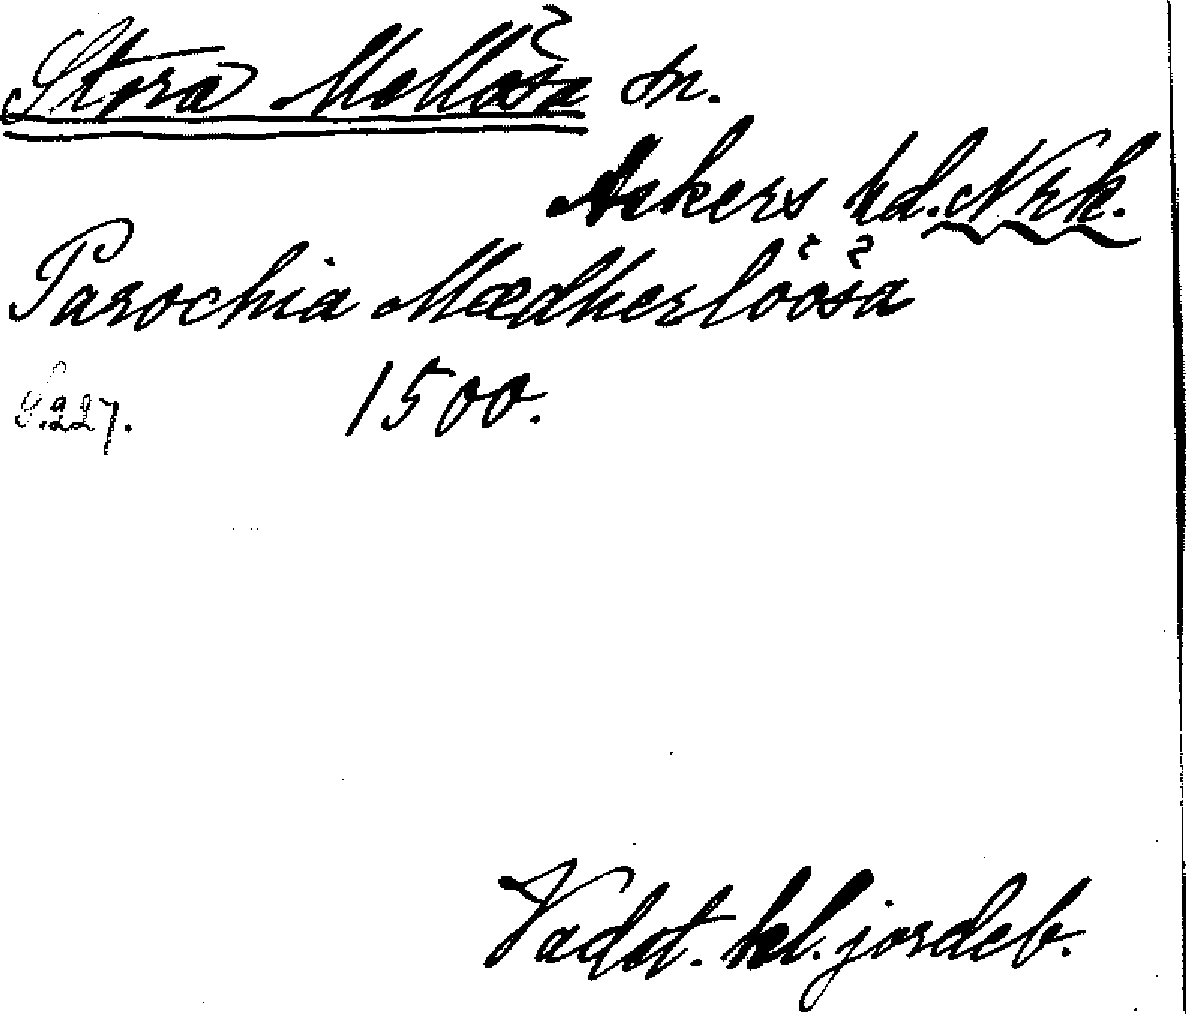 Stora Mellösa sn.
Askers hd. Nrk.
Parochia Mædherlöösa
S. 227. 1500.
Vadst. kl. jordeb.